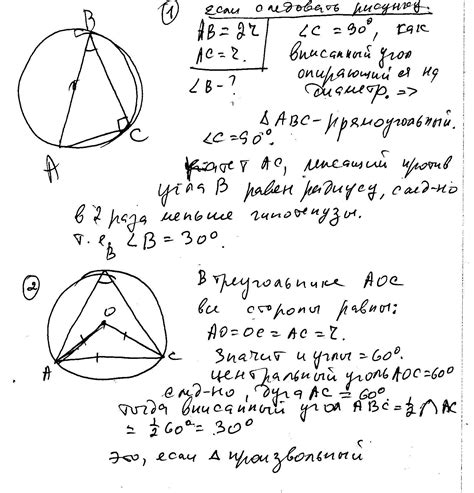 ① если следовать рисунку.
B
AB = 2r
AC = r.
∠B - ?
∠C = 90°, как
вписанный угол
опирающийся на
диаметр. =>
r
C
A
△ABC - прямоугольный.
∠C = 90°.
катет AC, лежащий против
угла B равен радиусу, след-но
в 2 раза меньше гипотенузы.
т.е. ∠B = 30°.
②
B
O
A
C
В треугольнике AOC
все стороны равны:
AO = OC = AC = r.
Значит и углы = 60°.
центральный угол AOC = 60°
след-но, дуга AC = 60°
тогда вписанный угол ABC = ½ ◠ AC
= ½ 60° = 30°
это, если △ произвольный